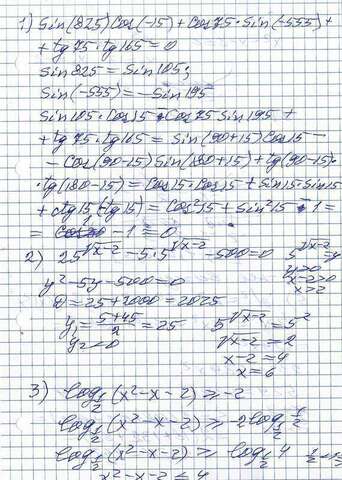 1) Sin(825)Cos(-15)+Cos75·Sin(-555)+
+tg75·tg165=0
Sin825=Sin105;
Sin(-555)=-Sin195
Sin105·Cos15-Cos75Sin195+
+tg75·tg165=Sin(90+15)Cos15-
-Cos(90-15)Sin(180+15)+tg(90-15)·
·tg(180-15)=Cos15·Cos15+Sin15·Sin15
+ctg15(-tg15)=Cos²15+Sin²15-1=
=1-1≡0
2) 25^√(x-2)-5·5^√(x-2)-500=0 5^√(x-2)=y
y>0
y²-5y-500=0 x-2>0
D=25+2000=2025 x>2
y₁=(5+45)/2=25 5^√(x-2)=5²
y₂<0 √(x-2)=2
x-2=4
x=6
3) log_{1/2}(x²-x-2)≥-2
log_{1/2}(x²-x-2)≥-2log_{1/2}1/2
log_{1/2}(x²-x-2)≥log_{1/2}4
x²-x-2≤4